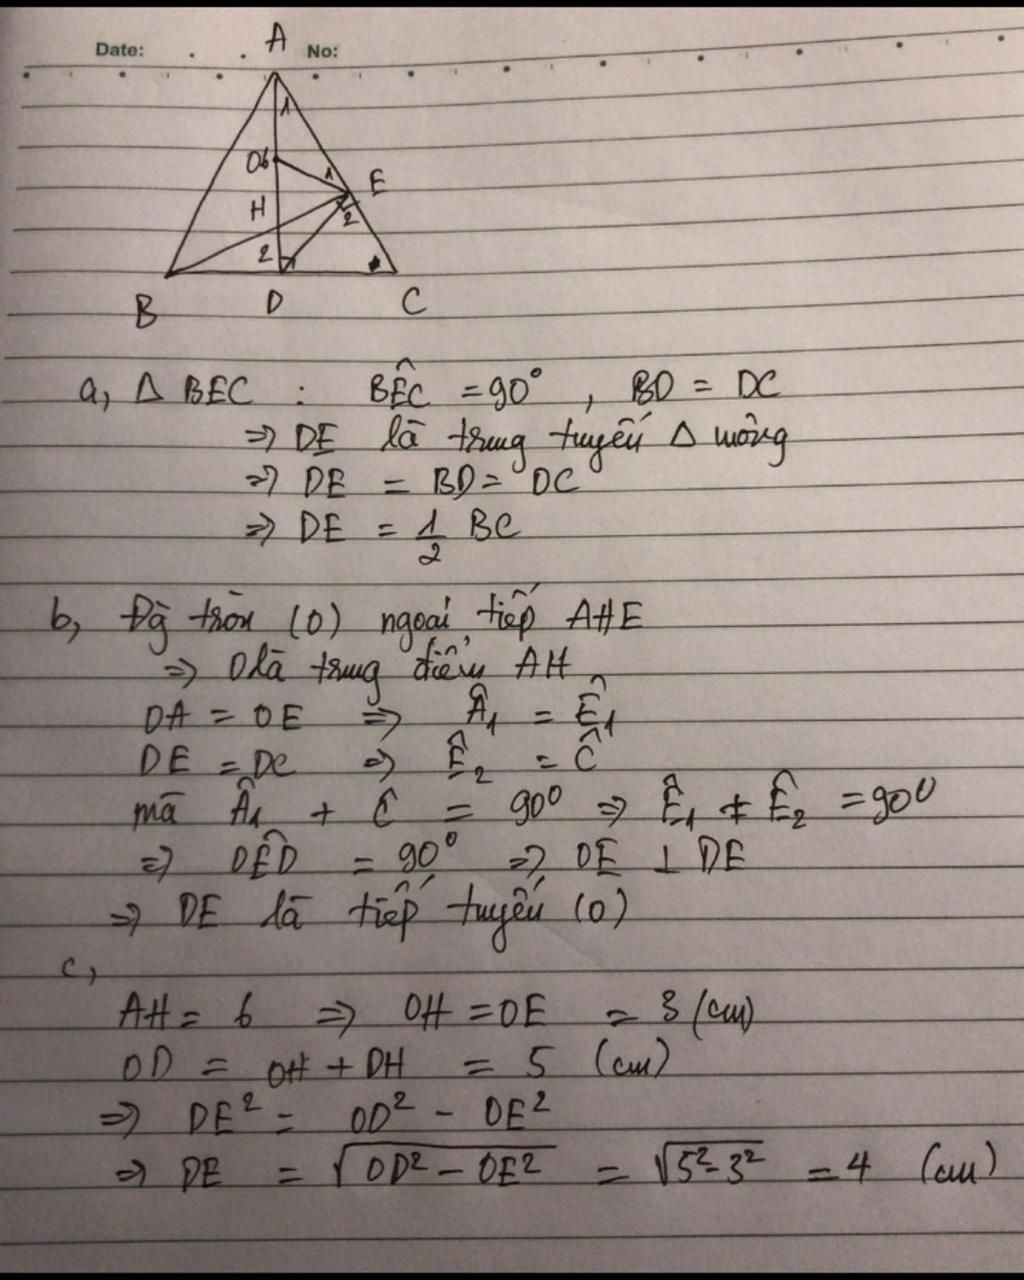 Date: . . No:
A
1
O
1
E
H
2
2 1
B D C
a, Δ BEC : BÊC = 90° , BD = DC
=> DE là trung tuyến Δ vuông
=> DE = BD = DC
=> DE = 1/2 BC
b, Đg tròn (O) ngoại tiếp AHE
=> O là trung điểm AH
OA = OE => Â₁ = Ê₁
DE = DC => Ê₂ = Ĉ
mà Â₁ + Ĉ = 90° => Ê₁ + Ê₂ = 90°
=> OÊD = 90° => OE ⊥ DE
=> DE là tiếp tuyến (O)
c,
AH = 6 => OH = OE = 3 (cm)
OD = OH + DH = 5 (cm)
=> DE² = OD² - OE²
=> DE = √(OD² - OE²) = √(5² - 3²) = 4 (cm)